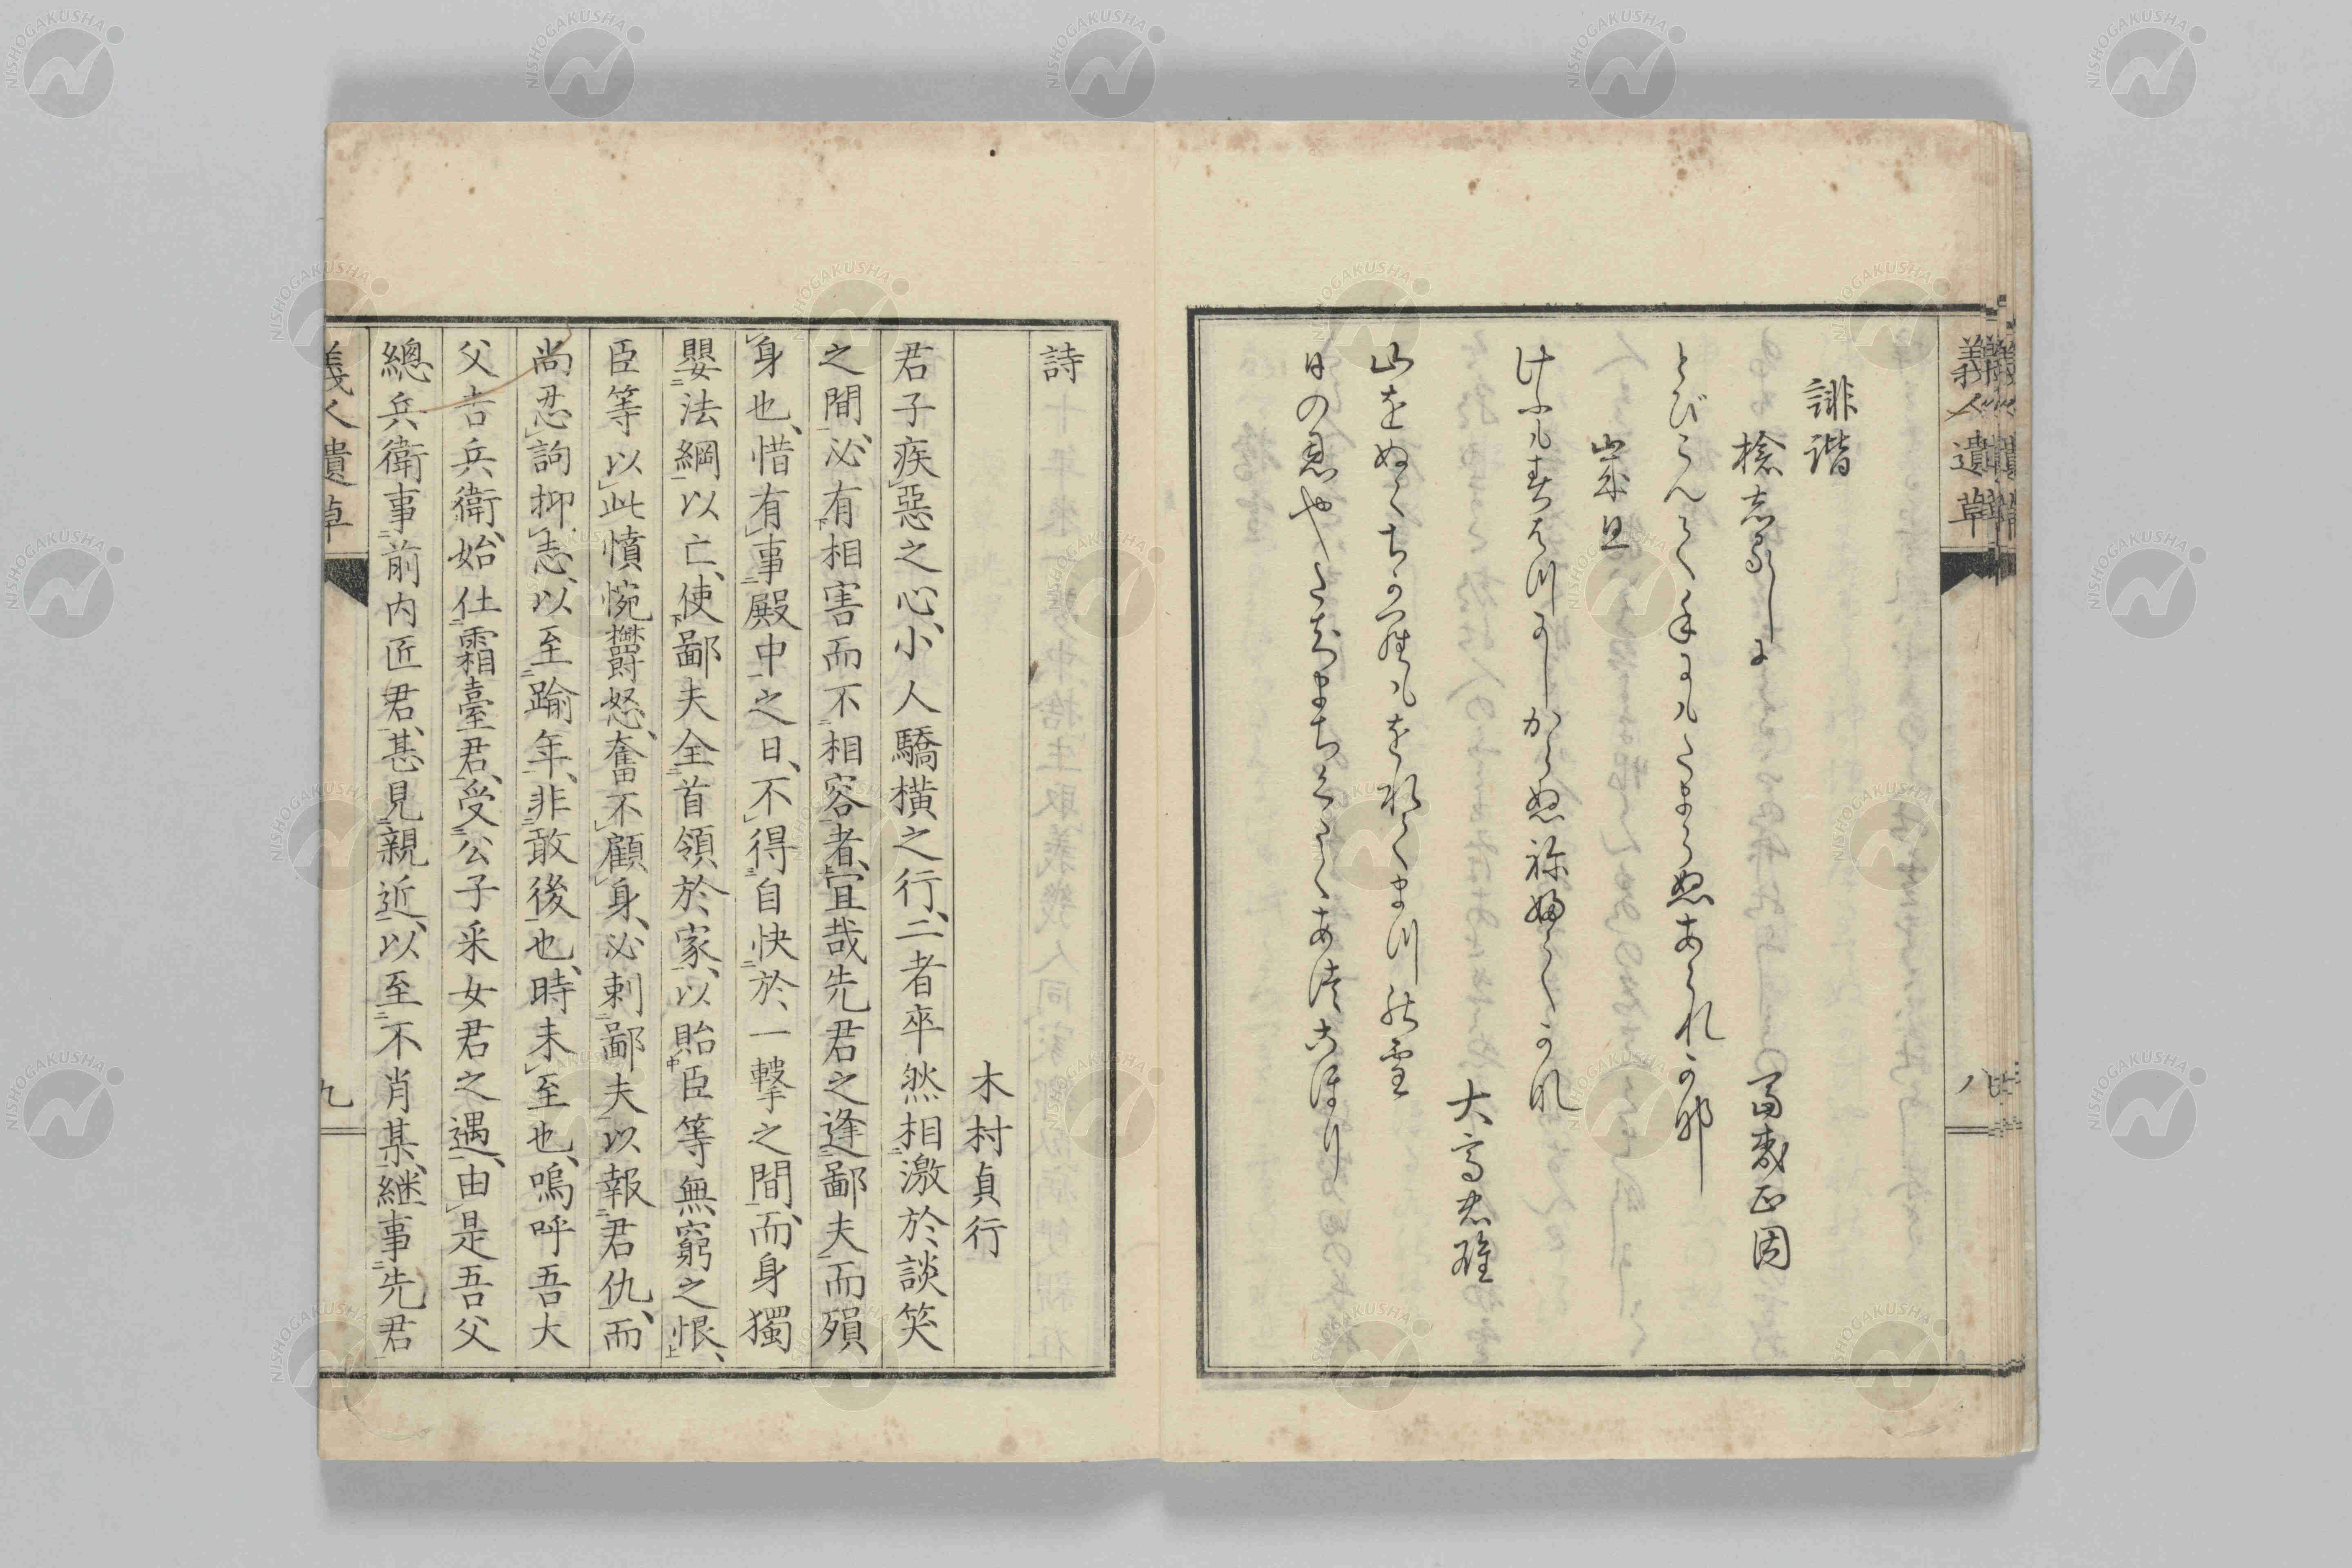 義人遺草
八
誹諧
富森正因
とびこんで手にもたまらぬあられかな
山家
けふも春はつ
大高忠雄
山をぬくちからもをれてまつの雪
日の恩やたちまちくだくあつ
詩
木村貞行
君子疾惡之心、小人驕橫之行、二者卒然相激於談笑
之間、必有相害而不相容者、宜哉先君之逢鄙夫而殞
身也、惜有事殿中之日、不得自快於一擊之間、而身獨
嬰法網以亡、使鄙夫全首領於家、以貽臣等無窮之恨、
臣等以此憤惋欝怒、奮不顧身、必刺鄙夫以報君仇、而
尚忍詢抑志、以至踰年、非敢後也、時未至也、嗚呼吾大
父吉兵衛、始仕霜臺君、受公子釆女君之遇、由是吾父
總兵衛事前內匠君、甚見親近、以至不肖某、継事先君
義人遺草
九